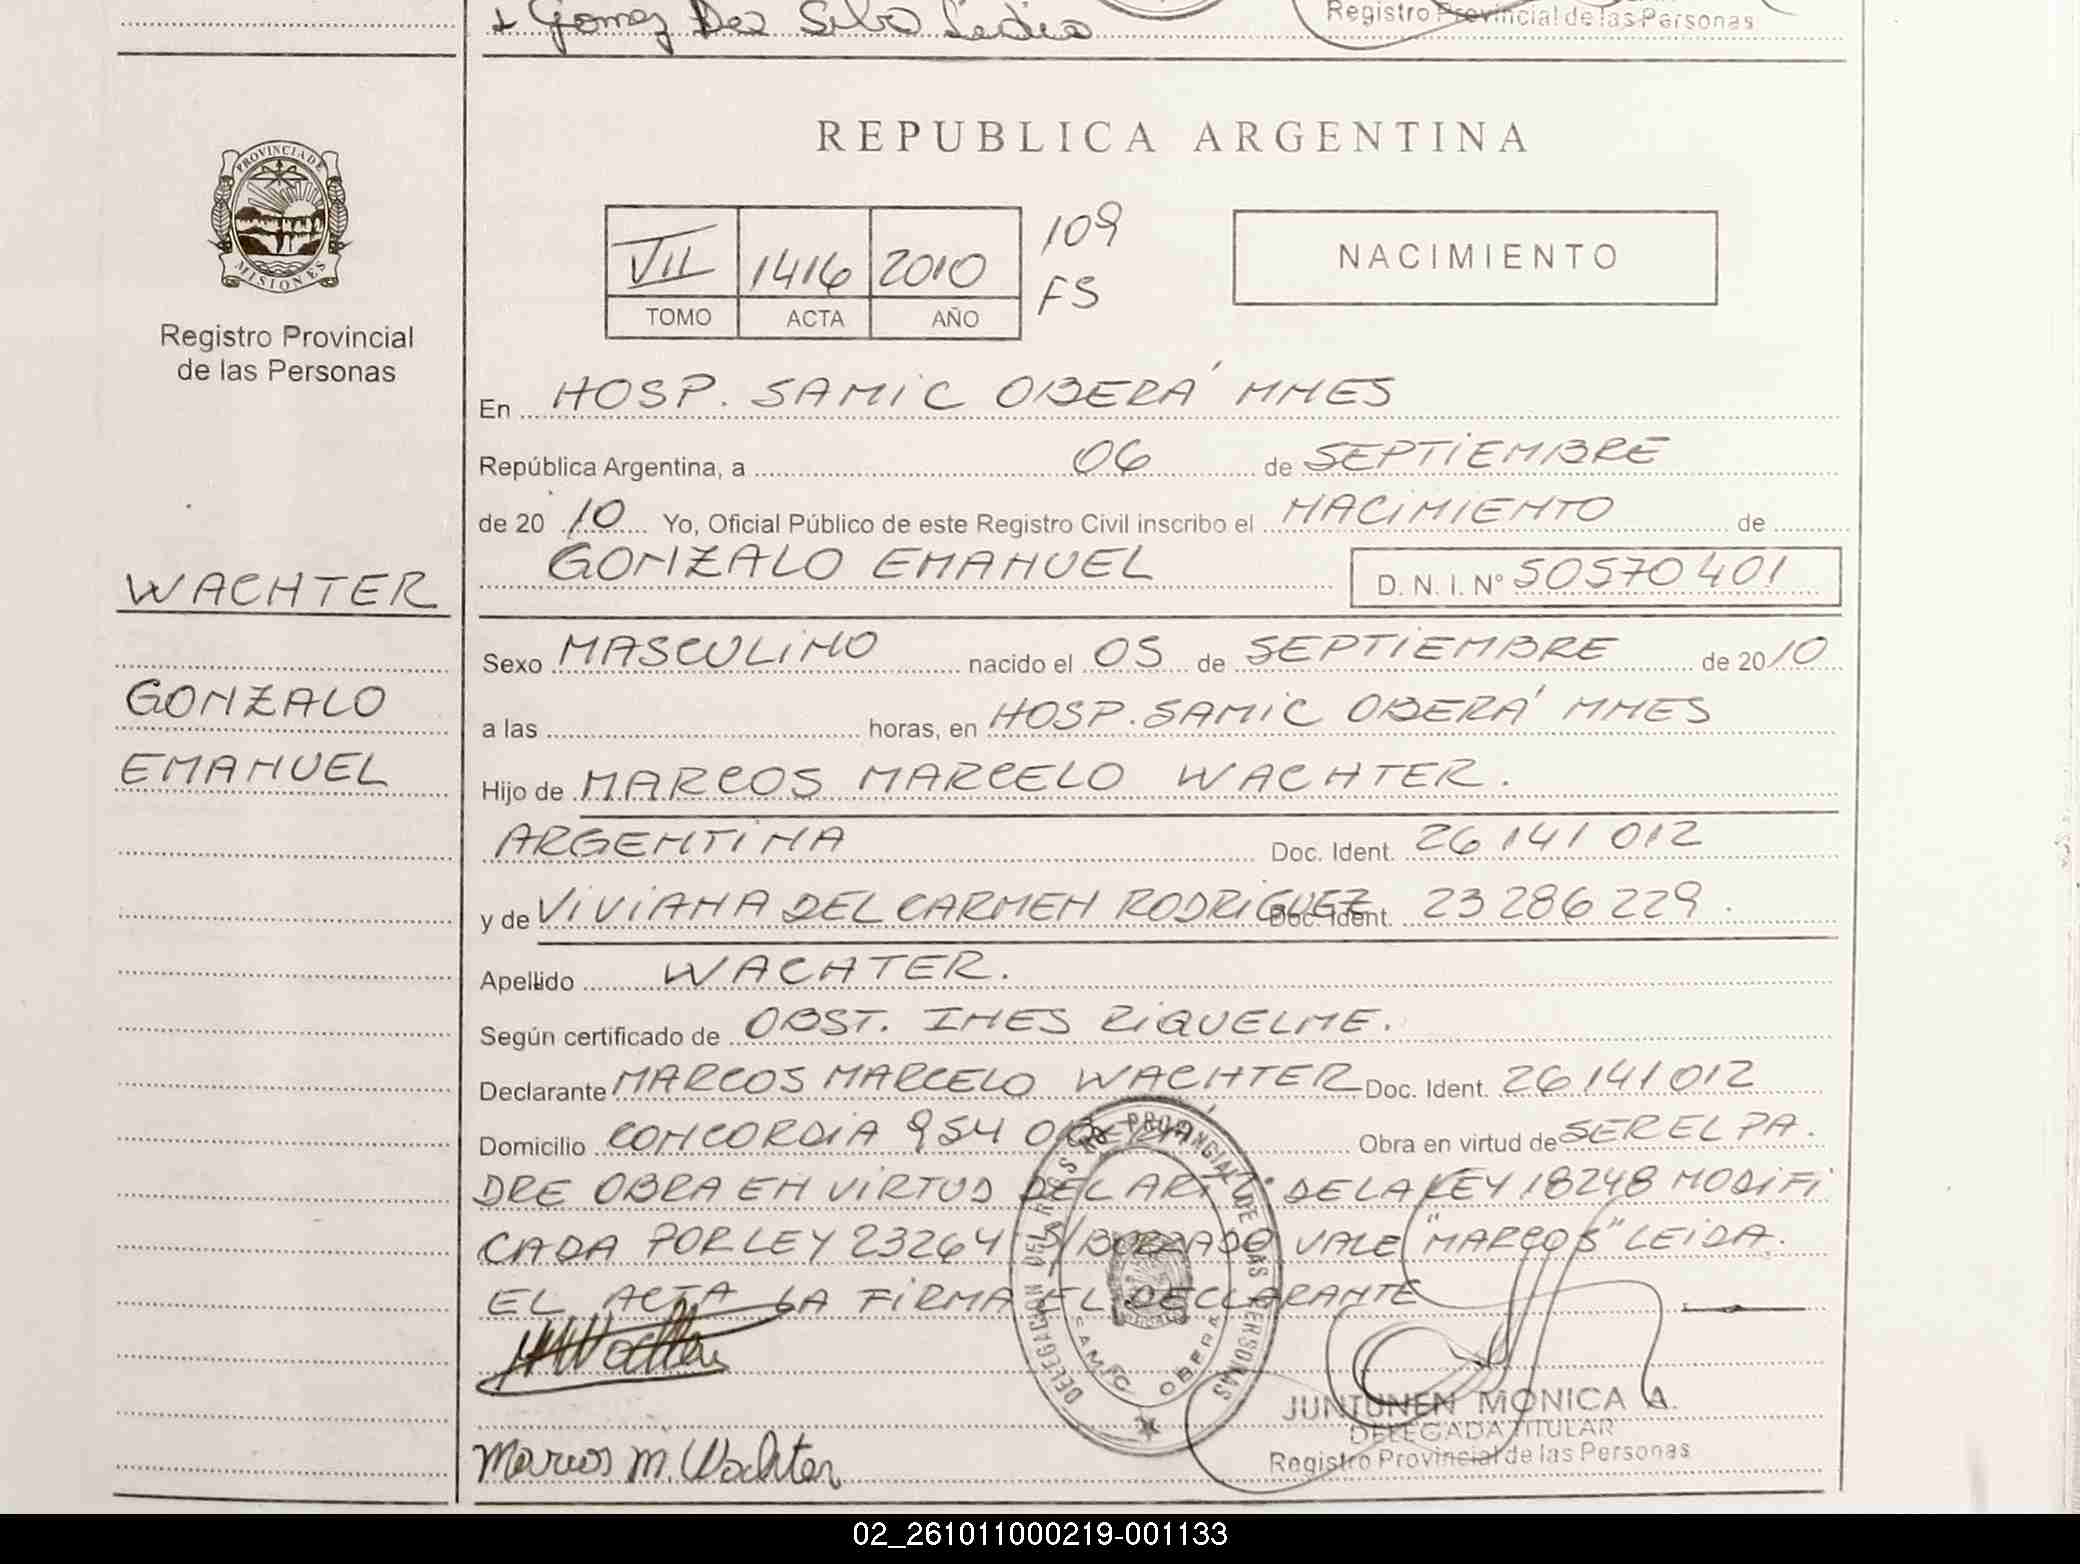 + Gomez Da Silva
Registro Provincial de las Personas
PROVINCIA DE
MISIONES
Registro Provincial
de las Personas
REPUBLICA ARGENTINA
VII 1416 2010 109
FS
TOMO ACTA AÑO
NACIMIENTO
En HOSP. SAMIC OBERÁ MNES
República Argentina, a 06 de SEPTIEMBRE
de 20 10 Yo, Oficial Público de este Registro Civil inscribo el NACIMIENTO de
GONZALO EMANUEL D. N. I. N° 50570401
WACHTER
GONZALO
EMANUEL
Sexo MASCULINO nacido el 05 de SEPTIEMBRE de 20 10
a las horas, en HOSP. SAMIC OBERÁ MNES
Hijo de MARCOS MARCELO WACHTER.
ARGENTINA Doc. Ident. 26 141 012
y de VIVIANA DEL CARMEN RODRIGUEZ Doc. Ident. 23 286 229.
Apellido WACHTER.
Según certificado de OBST. INES RIQUELME.
Declarante MARCOS MARCELO WACHTER Doc. Ident. 26 141 012
Domicilio CONCORDIA 954 OBERÁ Obra en virtud de SER EL PA.
DRE OBRA EN VIRTUD DEL ART. DE LA LEY 18248 MODIFI
CADA POR LEY 23264 S/BORRADO VALE "MARCOS" LEIDA.
EL ACTA LA FIRMA EL DECLARANTE
DELEGACION DEL REG. PROVINCIAL DE LAS PERSONAS
SAMIC OBERA
Marcos M. Wachter
JUNTUNEN MONICA A.
DELEGADA TITULAR
Registro Provincial de las Personas
02_261011000219-001133